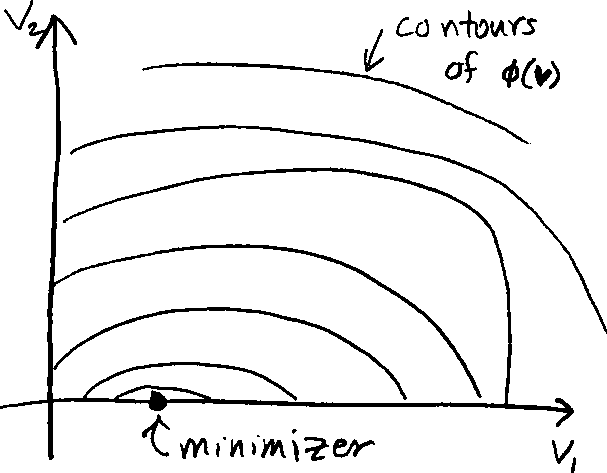 V₂
contours
of ϕ(v)
minimizer
V₁